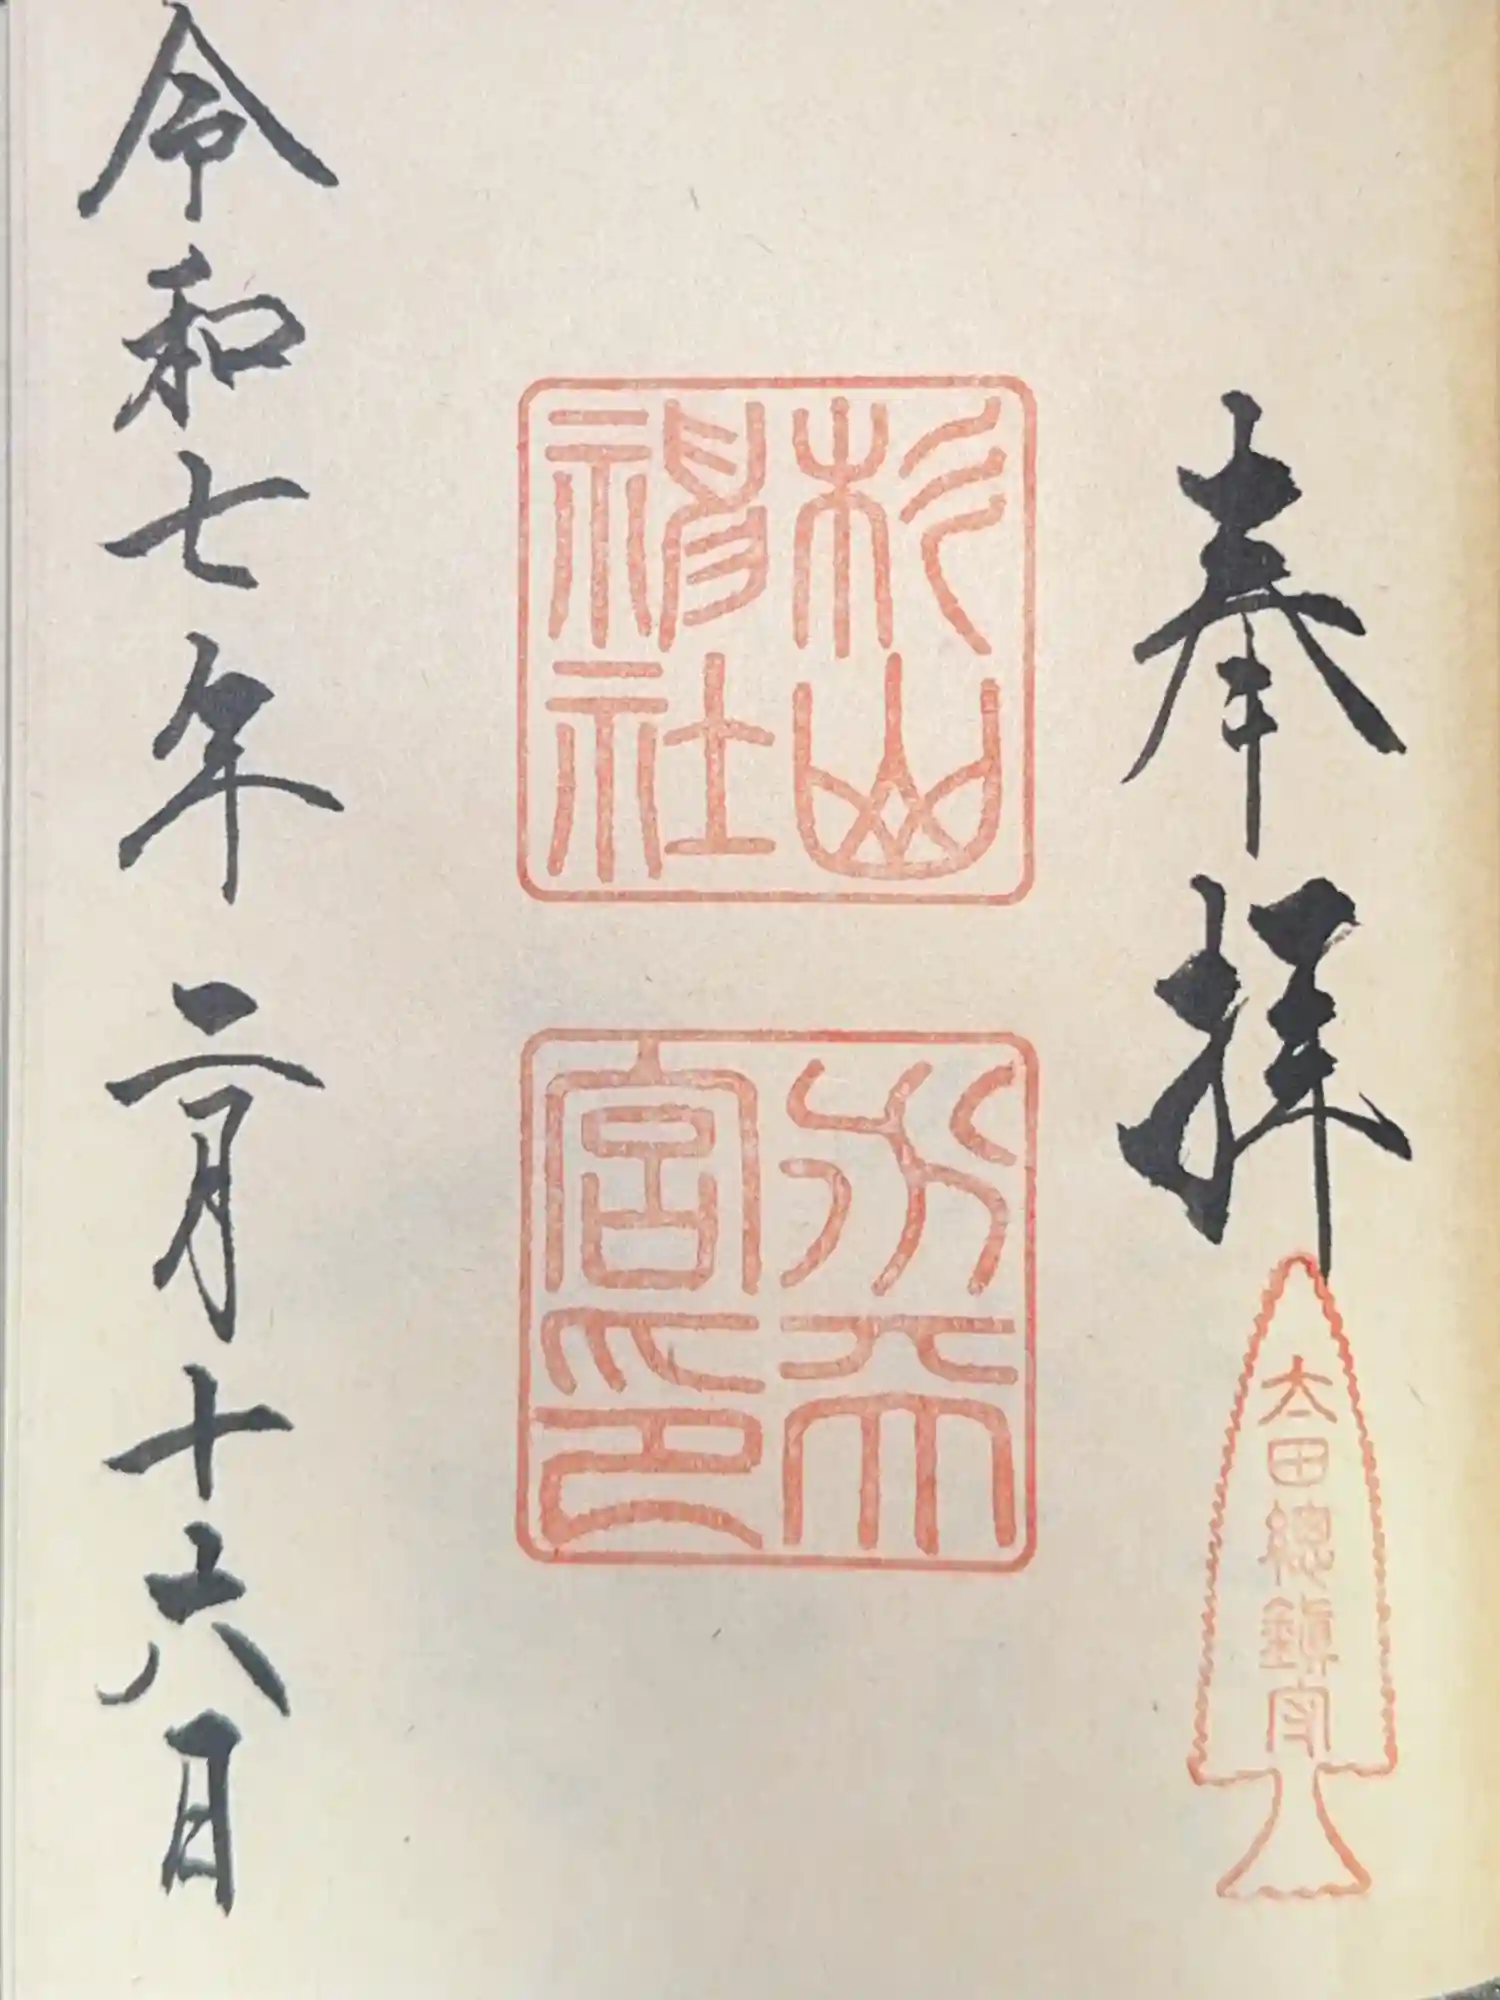 奉拝
太田總鎮守
杉山
神社
水天
宮印
令和七年二月十六日